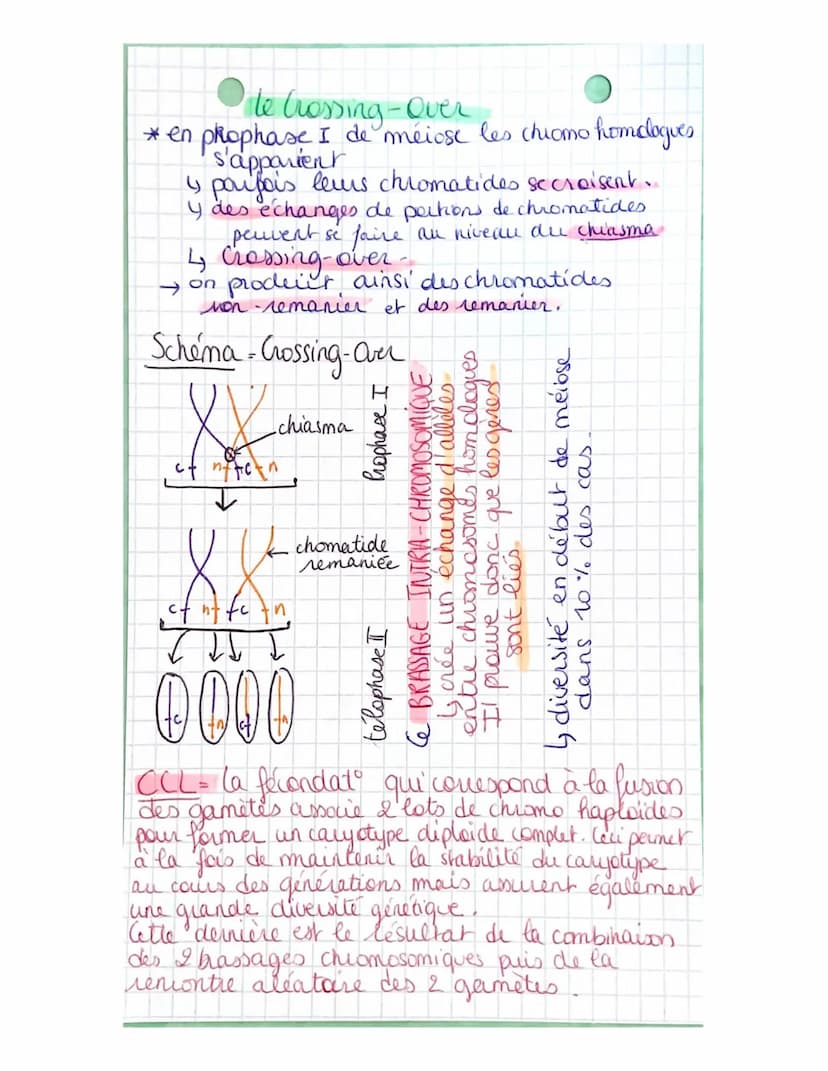 Le Crossing-Over
* en prophase I de méiose les chromo homologues
s'apparient
↳ parfois leurs chromatides se croisent.
↳ des échanges de portions de chromatides
peuvent se faire au niveau du chiasma
↳ Crossing-over.
→ on produit ainsi des chromatides
non-remanier et des remanier.
Schéma = Crossing-Over
chiasma
c n c n
Prophase I
chomatide
remaniée
c n c n
c n c n
télophase II
Le BRASSAGE INTRA-CHROMOSOMIQUE
↳ crée un échange d'allèles
entre chromosomes homologues
Il prouve donc que les gènes
sont liés.
↳ diversité en début de méiose
dans 10% des cas.
CCL = la fécondat° qui correspond à la fusion
des gamètes associe 2 lots de chromo haploïdes
pour former un caryotype diploïde complet. Ceci permet
à la fois de maintenir la stabilité du caryotype
au cours des générations mais assurent également
une grande diversité génétique.
Cette dernière est le résultat de la combinaison
des 2 brassages chromosomiques puis de la
rencontre aléatoire des 2 gamètes.